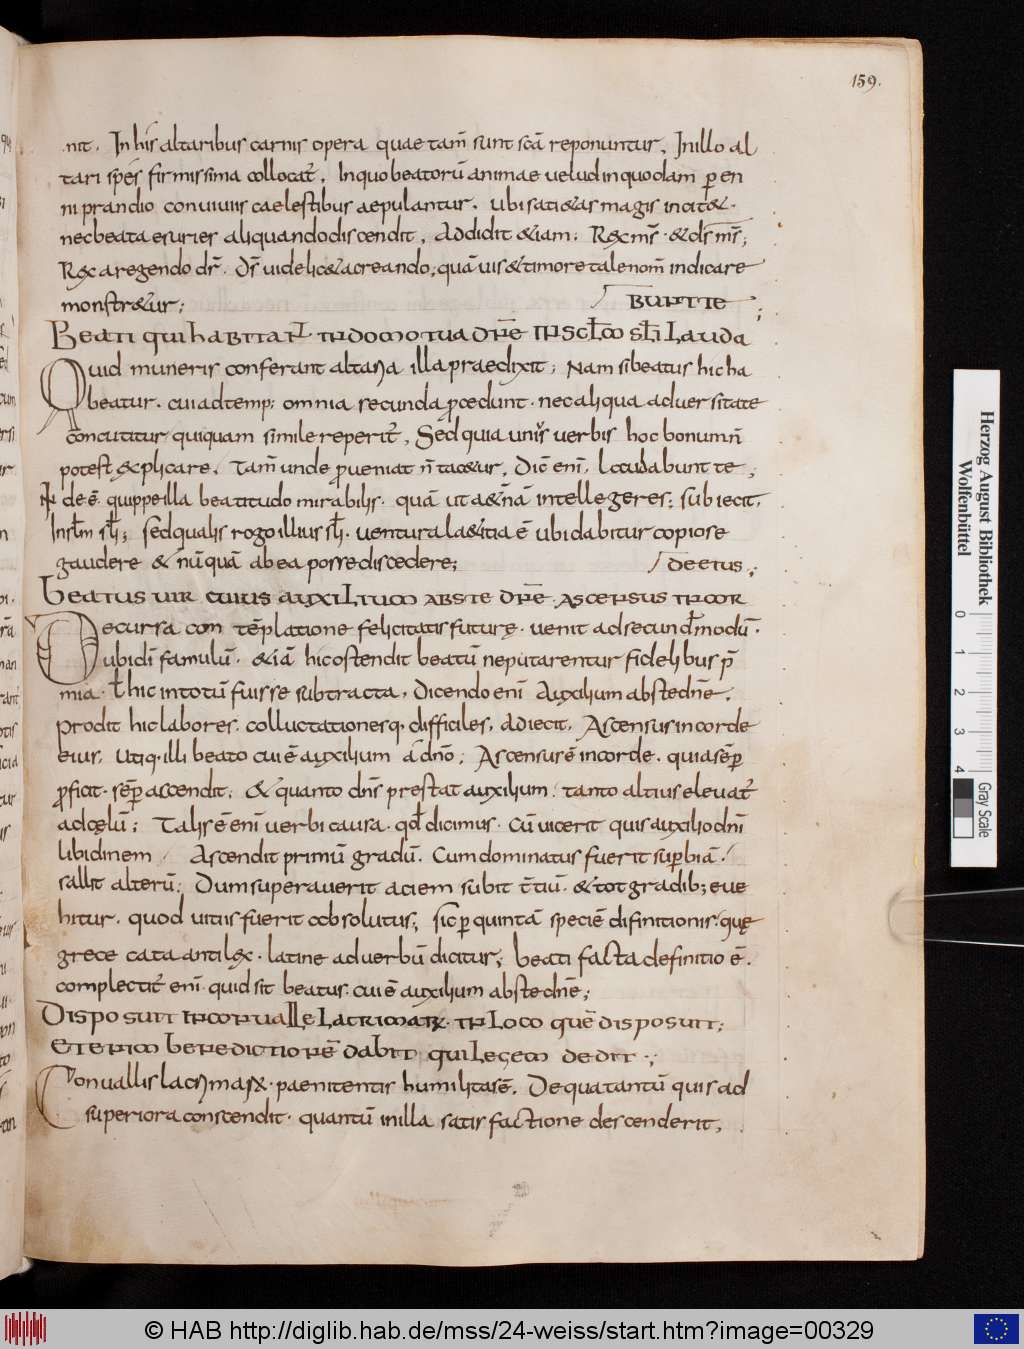 159.
nit. In his altaribus carnis opera quae tam̄ sunt sc̄a reponuntur. In illo al
tari spēs firmissima collocat̄. In quo beatorū animae velud in quodam p̄ en
ni prandio conviviis caelestibus aepulantur. ubi sati&as magis incit&.
nec beata esuries aliquando discendit. Addidit &iam. Rex ms̄. & ds̄ ms̄;
Rex a regendo dr̄. Ds̄ videlic& a creando; quā vis & timore tale nom̄ indicare
monstr&ur; BUNT TE;
BEATI QUI HABITANT IN DOMO TUA DN̄E IN SCL̄M SCL̄I LAUDA
Quid muneris conferant altaria illa praedixit; Nam si beatus hic ha
beatur. cui ad temp; omnia secunda ꝓcedunt. nec aliqua adversitate
concutitur quiquam simile reperit̄. Sed quia unius verbis hoc bonum n̄
potest explicare. Tam̄ unde ꝓveniat n̄ tac&ur. Dic̄ eni. Laudabunt te;
Inde ē quippe illa beatitudo mirabilis. quā ut a&nā intellegeres; subiecit.
In scl̄m scl̄i; sed qualis rogo illius scl̄i. ventura la&itia ē ubi dabitur copiose
gaudere & nū quā ab ea posse discedere; DE EIUS;
BEATUS VIR CUIUS AUXILIUM ABS TE DN̄E. ASCENSUS IN COR
Decursa contēplatione felicitatis future. venit ad secund̄ modū.
ubi din̄ famulū. &iā hic ostendit beatū ne putarentur fidelibus p̄
mia. ł hic in totū fuisse subtracta. Dicendo enī Auxilium abs te dn̄e.
Prodit hic labores. colluctationesq. difficiles. Adiecit. Ascensus in corde
eius. Utiq. illi beato cui ē auxilium a dn̄o; Ascensus ē in corde. quia sēp̄
ꝓficit. sēp̄ ascendit; & quanto dn̄s prestat auxilium. tanto altius elevat̄
ad cęlū; Talis ē enī verbi causa. qd̄ dicimus. Cū vicerit quis auxilio dn̄i
libidinem / Ascendit primū gradū. Cum dominatus fuerit sup̄biā./
sallit alterū; Dum superaverit aciem subit t̄tiū. & tot gradib; eve
hitur. quod vitiis fuerit obsolutus; sic p̄ quintā speciē difinitionis. quę
grece cata antilex. latine ad verbū dicitur; beati facta definitio ē.
complectit̄ enī. quid sit beatus. cui ē auxilium abs te dn̄e;
DISPOSUIT IN CONVALLE LACRIMARꝜ. IN LOCO QUĒ DISPOSUIT;
ETENIM BENEDICTIONĒ DABIT QUI LEGEM DEDIT;
Convallis lacrimarꝝ. paenitentis humilitas ē. De qua tantū quis ad
superiora conscendit. quantū in illa satisfactione descenderit.
Herzog August Bibliothek
Wolfenbüttel
0 1 2 3 4
Gray Scale
© HAB http://diglib.hab.de/mss/24-weiss/start.htm?image=00329